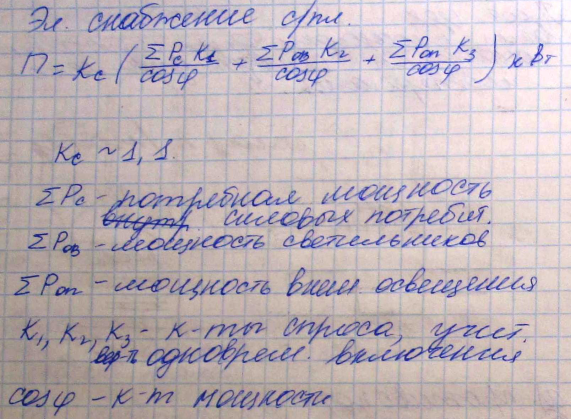 Эл. снабжение с/пл.
П = Kc ( ΣPc K1 / cosφ + ΣPов K2 / cosφ + ΣPоп K3 / cosφ ) кВт
Kc ~ 1,1.
ΣPc - потребная мощность
внутр силовых потребит.
ΣPов - мощность светильников
ΣPоп - мощность внеш. освещения
K1, K2, K3 - к-ты спроса, учит.
одноврем. включения
cosφ - к-т мощности